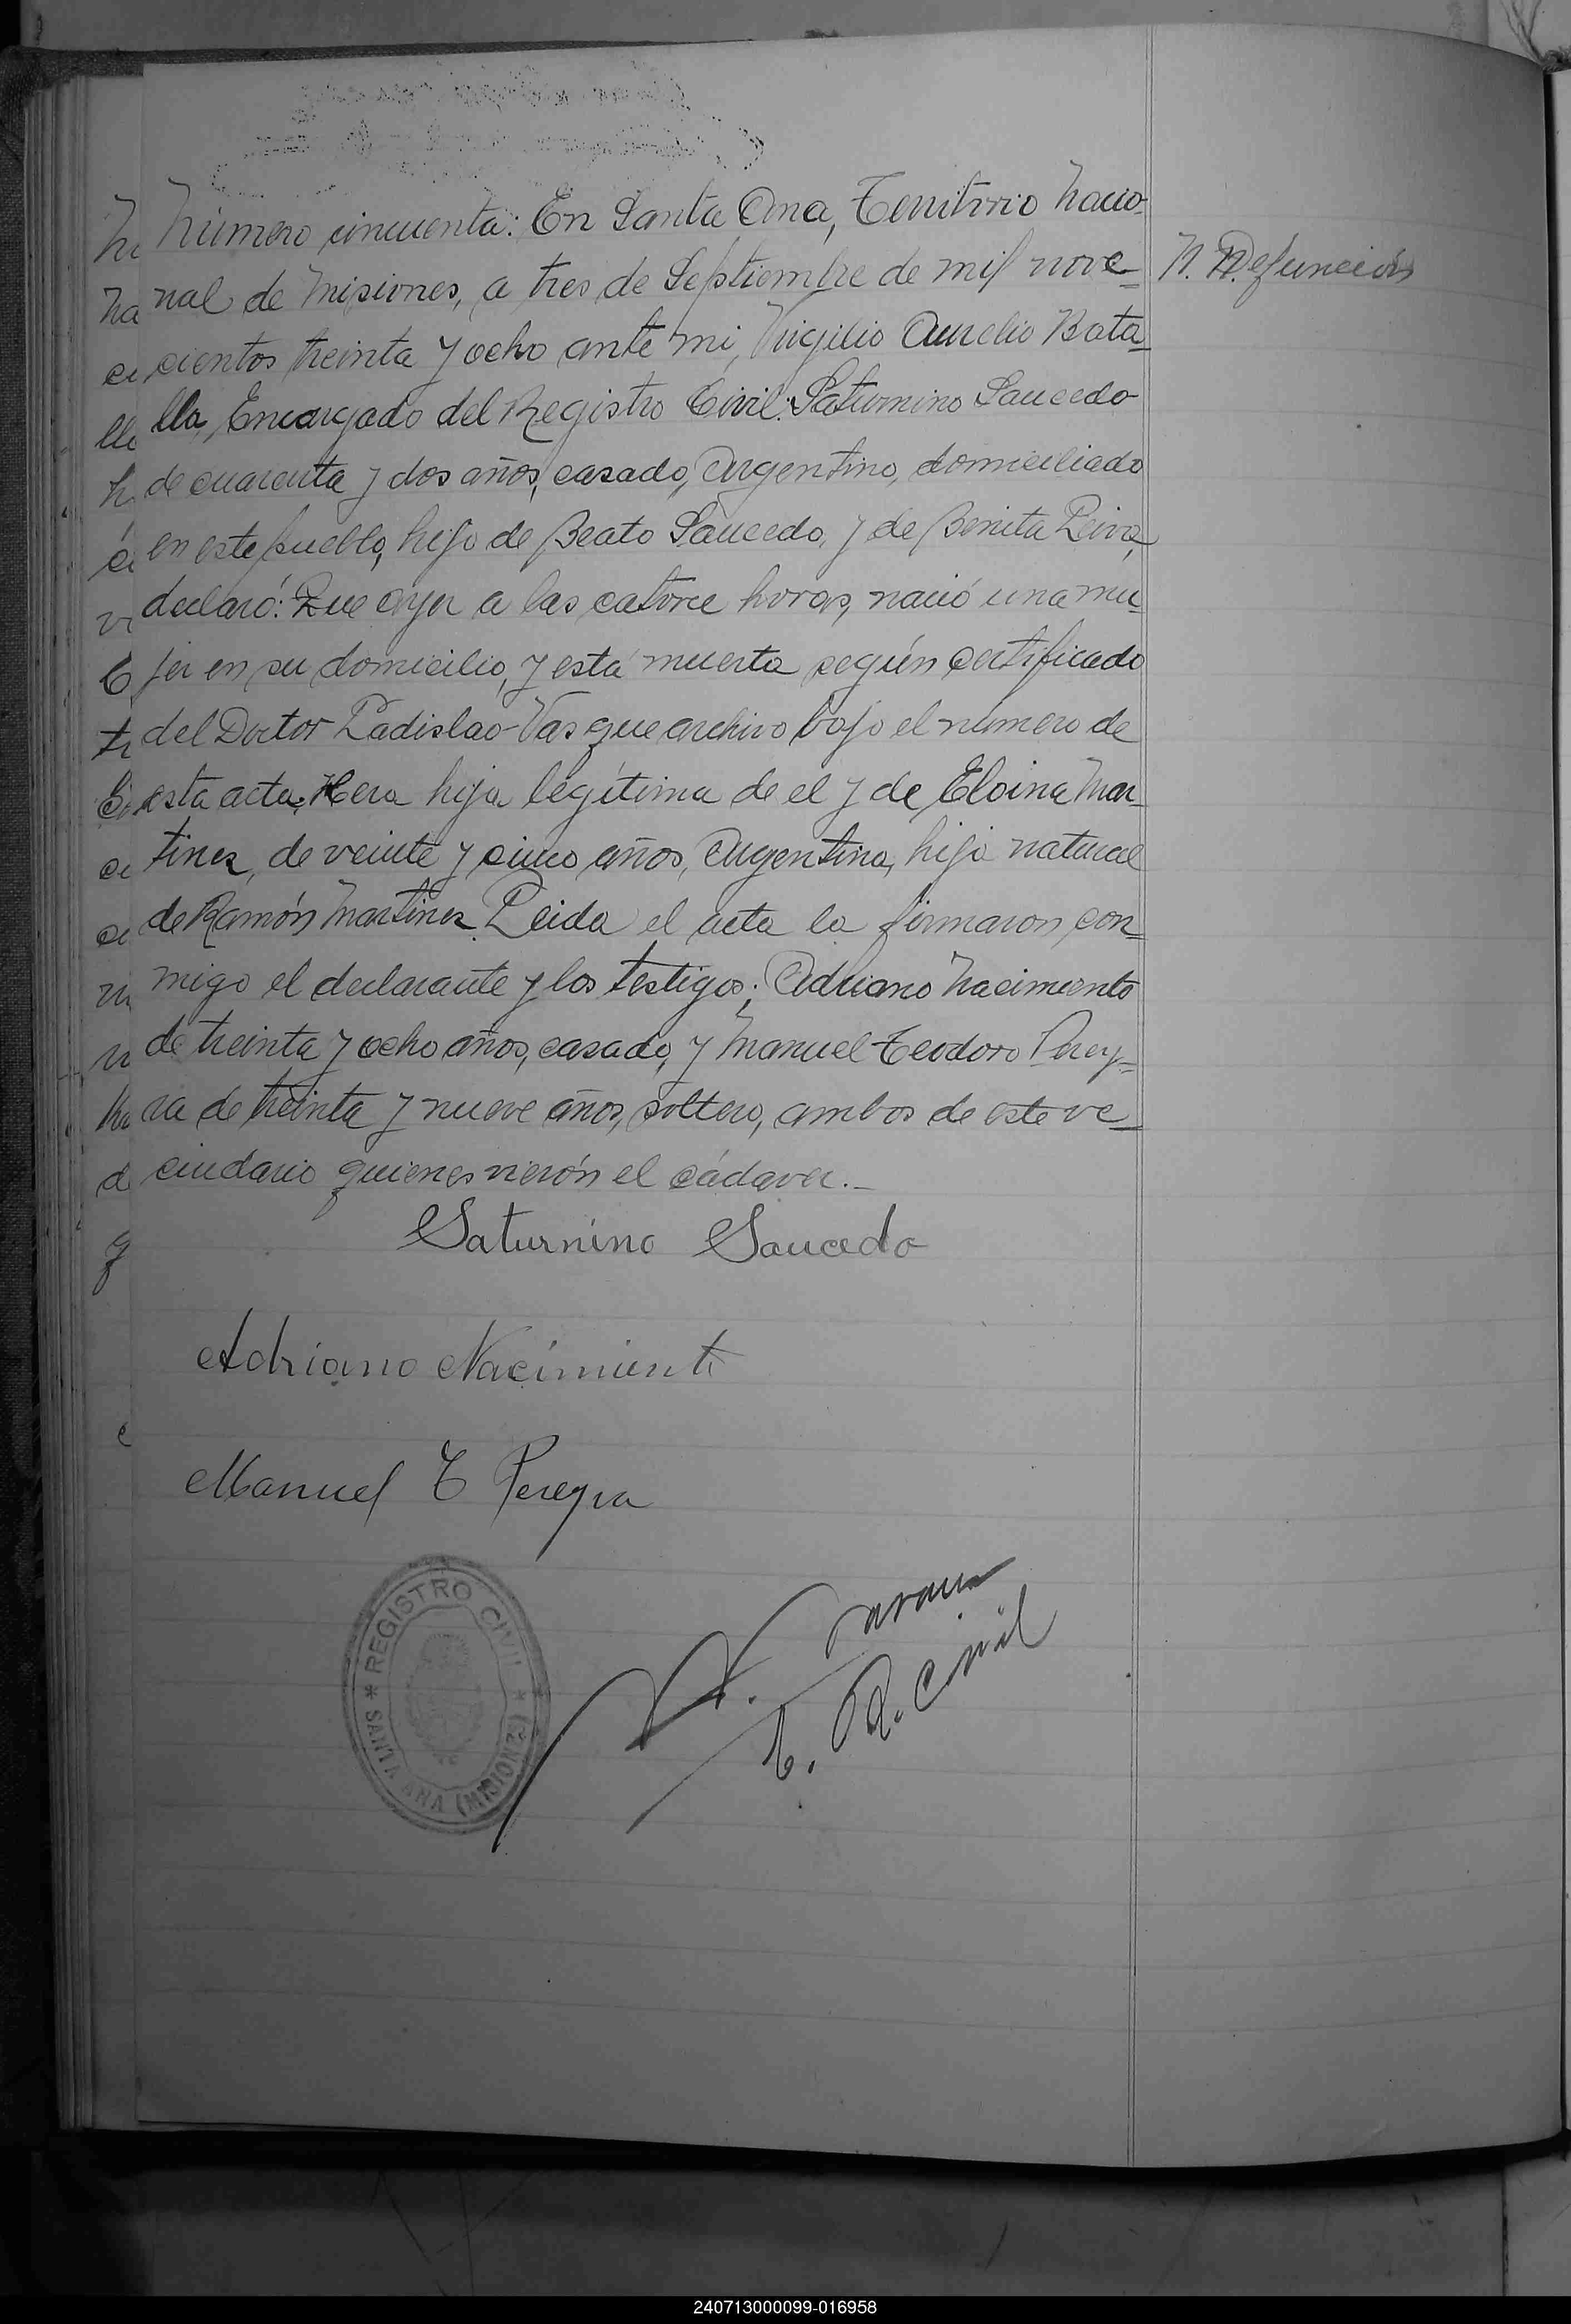 Número cincuenta: En Santa Ana, Territorio Nacio-
nal de Misiones, a tres de Septiembre de mil nove-
cientos treinta y ocho ante mi, Virgilio Aurelio Bata-
lla, Encargado del Registro Civil: Saturnino Saucedo
de cuarenta y dos años, casado, Argentino, domiciliado
en este pueblo, hijo de Beato Saucedo, y de Benita Leiva,
declaró: Que ayer a las catorce horas, nació una mu-
jer en su domicilio, y está muerta según certificado
del Doctor Ladislao Vas que archivo bajo el número de
esta acta. Hera hija legítima de el y de Eloina Mar-
tinez, de veinte y cinco años, Argentina, hija natural
de Ramón Martinez. Leida el acta la firmaron con-
migo el declarante y los testigos; Adriano Nacimiento
de treinta y ocho años, casado, y Manuel Teodoro Perey-
ra de treinta y nueve años, soltero, ambos de este ve-
cindario quienes vierón el cádaver.-
N. N. Defuncion
Saturnino Saucedo
Adriano Nacimiento
Manuel T Pereyra
* REGISTRO CIVIL * SANTA ANA (MISIONES)
E. R. Civil
240713000099-016958